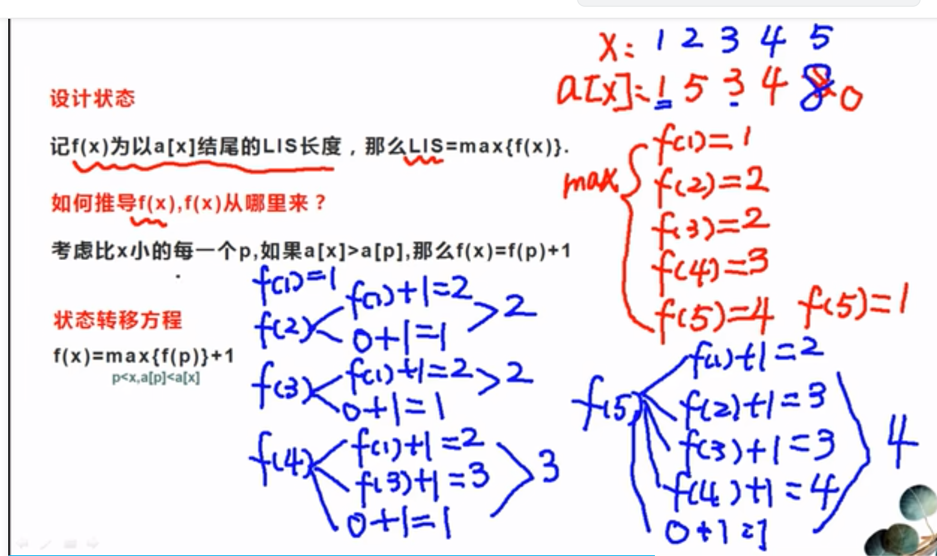 x: 1 2 3 4 5
a[x]=1 5 3 4 8 0
设计状态
记f(x)为以a[x]结尾的LIS长度，那么LIS=max{f(x)}.
如何推导f(x),f(x)从哪里来？
考虑比x小的每一个p,如果a[x]>a[p],那么f(x)=f(p)+1
状态转移方程
f(x)=max{f(p)}+1
p<x,a[p]<a[x]
max
f(1)=1
f(2)=2
f(3)=2
f(4)=3
f(5)=4 f(5)=1
f(1)=1
f(2) f(1)+1=2
0+1=1
2
f(3) f(1)+1=2
0+1=1
2
f(4) f(1)+1=2
f(3)+1=3
0+1=1
3
f(5) f(1)+1=2
f(2)+1=3
f(3)+1=3
f(4)+1=4
0+1=1
4